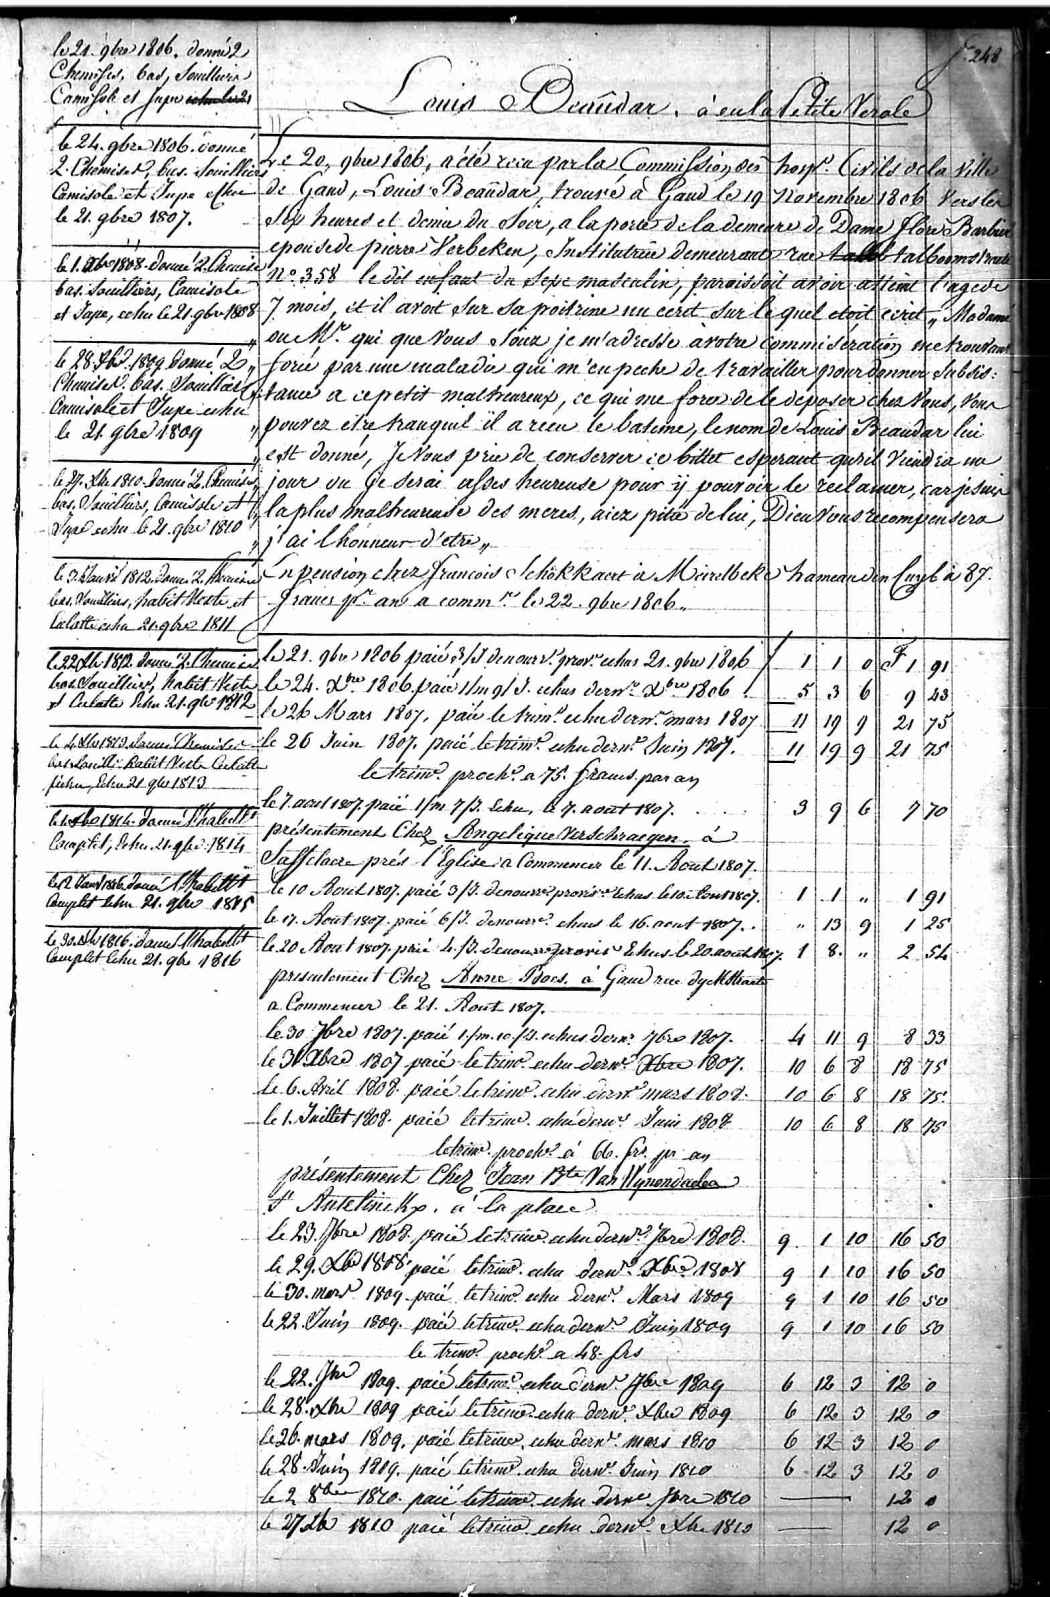 f° 248
Louis Beaudar. à eu la Petite Verole
le 21. 9bre 1806. donné 2
Chemises, bas, Souilliers
Camisole et Jupe echu le 21
le 24. 9bre 1806. donné
2. Chemises, bas. Souilliers
Camisole et Jupe echu
le 21. 9bre 1807.
le 1. Xbre 1808. donné 2. Chemise
bas. Souilliers, Camisole
et Jupe, echu le 21. 9bre 1808
le 28. Xbre 1809 donné 2
Chemises. bas. Souilliers
Camisole et Jupe echu
le 21. 9bre 1809
le 27. Xbre 1810. donné 2. Chemises
bas, Souilliers, Camisole et
Jupe echu le 21. 9bre 1810
le 3. Janvr 1812. donné 2. Chemise
bas. Souilliers, habit Veste et
Culotte echu 21. 9bre 1811
le 22 Xbre 1812. donné 2. Chemise
bas Souilliers, habit Veste
et Culotte Echu 21. 9bre 1812
le 4. Xbre 1813. donné Chemise
bas Souilli. habit Veste Culotte
fichu, Echu 21. 9bre 1813
le 1. Xbre 1814. donné l'habillt
Complet, Echu 21. 9bre 1814
le 12 Janv 1816. donné l'habillt
Complet Echu 21. 9bre 1815
le 30. Xbre 1816. donné l'habillt
Complet Echu 21. 9bre 1816
Le 20. 9bre 1806, a été reçu par la Commission des hosp. Civils de la Ville
de Gand, Louis Beaudar, trouvé à Gand le 19 Novembre 1806 Vers les
Six heures et demie du Soir, a la porte de la demeure de Dame Flore Barbier
epouse de pierre Verbeken, Institutrice demeurant rue talboomstraete
N° 358 le dit enfant du Sexe masculin, paroissoit avoir atteint l'age de
7 mois, et il avoit sur sa poitrine un ecrit sur le quel etoit ecrit „ Madame
ou Mr. qui que Vous Soiez je m'adresse à votre commiseration me trouvant
forcé par une maladie qui m'enpeche de travailler pour donner subsis:
tance a ce petit malheureux, ce qui me force de le deposer chez Vous, Vous
pouvez etre tranquil il a recu le bateme, le nom de Louis Beaudar lui
est donné, Je Vous prie de conserver ce billet esperant qu'il Viendra un
jour ou je serai asses heureuse pour y pouvoir le reclamer, car je suis
la plus malheureuse des meres, aiez pitié de lui, Dieu Vous recompensera
j'ai l'honneur d'etre „
En pension chez francois Schökkaert à Meirelbeke hameau den Cuyl à 87.
francs pr. an a comm.r le 22. 9bre 1806 „
le 21. 9bre 1806 paié 3/J de nourr.e prov.e echus 21. 9bre 1806 1 1 0 F 1 91
le 24. Xbre 1806. paié 1/m 9/J. echus dern.r Xbre 1806 . 5 3 6 9 43
le 26 Mars 1807. paié le trim.e echu dern.r mars 1807 11 19 9 21 75
le 26 Juin 1807. paié le trim.e echu dern.r Juin 1807. 11 19 9 21 75
le trim.e proch.n a 75. francs par an
le 7. aout 1807. paié 1/m 7/J. Echu, le 7. aout 1807. 3 9 6 7 70
présentement Chez Angelique Verschraegen, à
Saffelaere prés l'Eglise a Commencer le 11. Aout 1807.
le 10 Aout 1807. paié 3/J. de nourr.e provis.re Echus le 10 Aout 1807. 1 1 „ 1 91
le 17. Aout 1807. paié 6/J. de nourr.e echus le 16. aout 1807. „ 13 9 1 25
le 20 Aout 1807. paié 4./J. de nourr.e provis.re Echus le 20 aout 1807. 1 8. „ 2 54
presentement Chez Anne Boes. à Gand rue dyckstraete
a Commencer le 21. Aout 1807.
le 30 7bre 1807. paié 1/m. 10/J. echus dern.r 7bre 1807. 4 11 9 8 33
le 31 Xbre 1807 paié le trim.e echu dern.r Xbre 1807. 10 6 8 18 75
le 6. Avril 1808. paié le trim.e echu dern.r mars 1808. 10 6 8 18 75.
le 1. Juillet 1808. paié le trim.e echu dern.r Juin 1808 10 6 8 18 75
le trim.e proch.n à 66. frs. pr an
présentement Chez Jean Bte Van Wynendaelen
St Antelincks. à la place
le 23. 7bre 1808. paié le trim.e echu dern.r 7bre 1808. 9. 1 10 16 50
le 29. Xbre 1808. paié le trim.e echu dern.r Xbre 1808 9 1 10 16 50
le 30. mars 1809. paié le trim.e echu dern.r Mars 1809 9 1 10 16 50
le 22. Juin 1809. paié le trim.e echu dern.r Juin 1809 9 1 10 16 50
le trim.e proch.n a 48. frs
le 22. 7bre 1809. paié le trim.e echu dern.r 7bre 1809 6 12 3 12 0
le 28. Xbre 1809 paié le trim.e echu dern.r Xbre 1809 6 12 3 12 0
le 26. mars 1809. paié le trim.e echu dern.r mars 1810 6 12 3 12 0
le 28. Juin 1809. paié le trim.e echu dern.r Juin 1810 6 12 3 12 0
le 2 8bre 1810. paié le trim.e echu dern.r 7bre 1810 — 12 0
le 27 Xbre 1810 paié le trim.e echu dern.r Xbre 1810 — 12 0